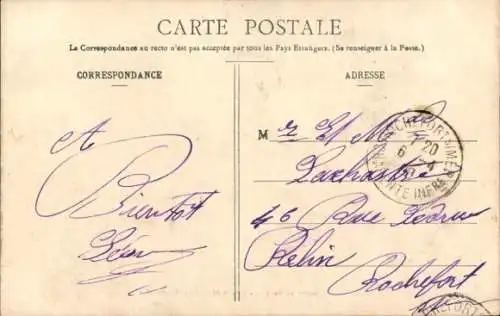 CARTE POSTALE
La Correspondance au recto n'est pas acceptée par tous les Pays Etrangers. (Se renseigner à la Poste.)
CORRESPONDANCE
ADRESSE
A
Bientot
Léon
M r Et Me
Lachastre
46 Rue Ledru
Rolin
Rochefort
ROCHEFORT S MER
7 20
6 - 4
CHARENTE INFRE